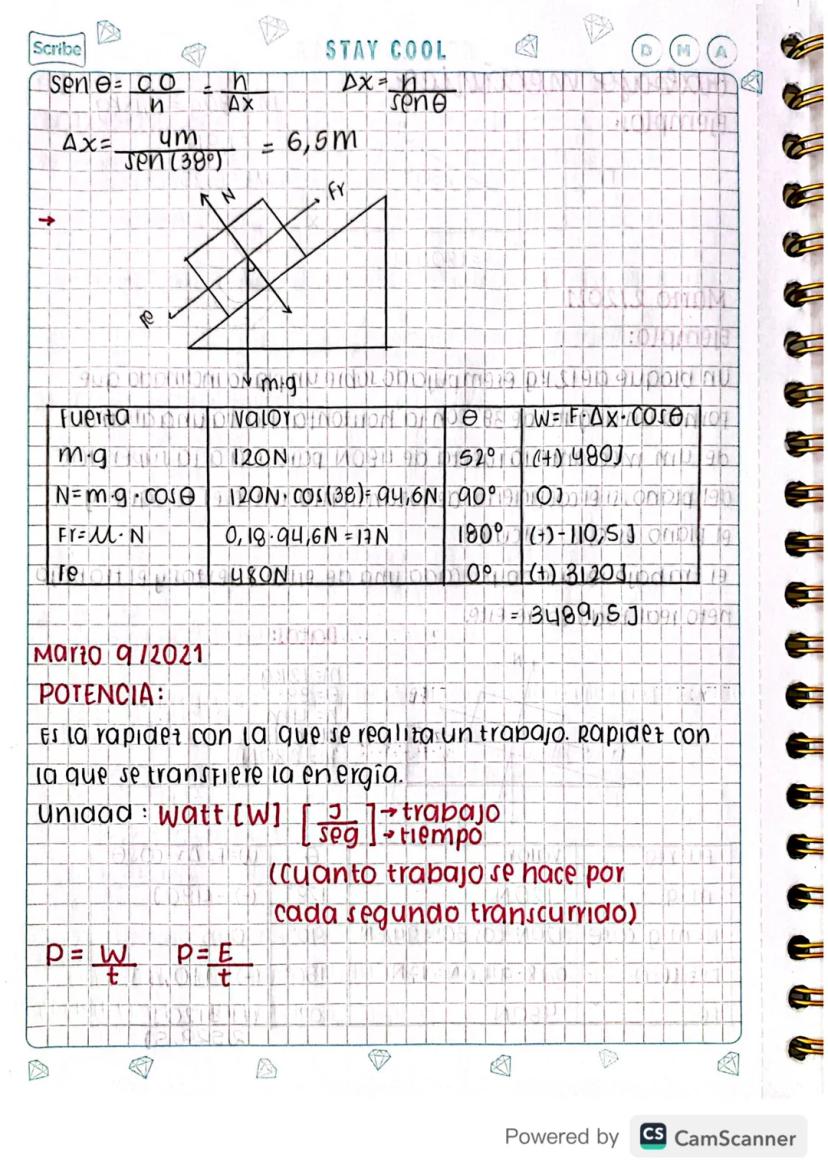 Scribe
STAY COOL
D M A
sen θ = CO/h = h/Δx    Δx = h/senθ
Δx = 4m/sen(38°) = 6,5m
→
N
Fr
Fe
m·g
Fuerza | Valor | θ | W=F·Δx·cosθ
m·g | 120N | 52° | (+) 480J
N=m·g·cosθ | 120N·cos(38)=94,6N | 90° | 0J
Fr=μ·N | 0,18·94,6N=17N | 180° | (+)-110,5J
Fe | 480N | 0° | (+) 3120J
= 3489,5J
Marzo 9/2021
POTENCIA:
Es la rapidez con la que se realiza un trabajo. Rapidez con
la que se transfiere la energía.
Unidad: Watt [W] [J/seg] →trabajo
→tiempo
(Cuanto trabajo se hace por
cada segundo transcurrido)
P = W/t    P = E/t
Powered by CS CamScanner